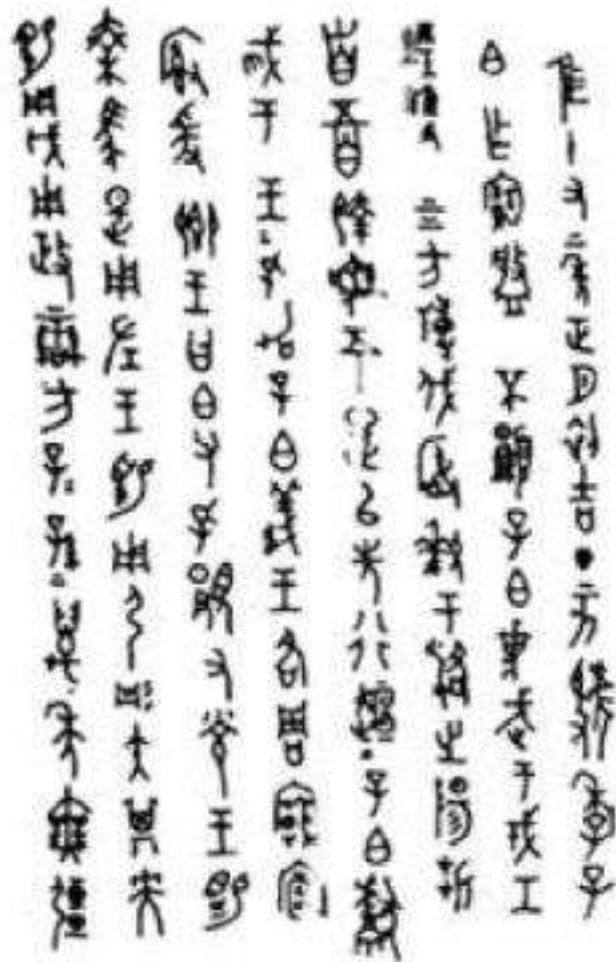 隹十又二年正月初吉丁亥虢季子
白乍寶盤不顯子白壯武于戎工
經維四方搏伐玁狁于洛之陽折
首五百執訊五十是以先行桓桓子白獻
馘于王王孔加子白義王各周廟宣
榭爰鄉王曰白父孔顯又光王睗
乘馬是用左王睗用弓彤矢其央
睗用戉用政蠻方子子孫孫萬年無疆